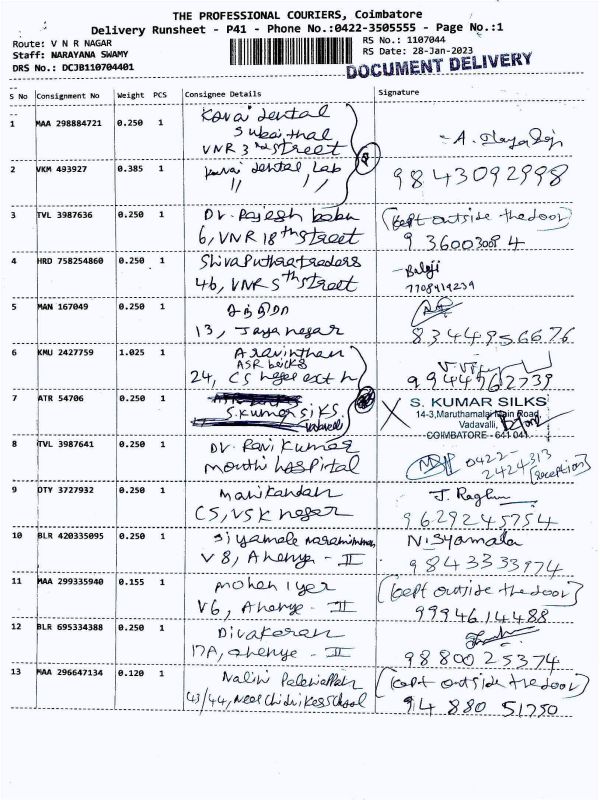 THE PROFESSIONAL COURIERS, Coimbatore
Delivery Runsheet - P41 - Phone No.:0422-3505555 - Page No.:1
Route: V N R NAGAR
RS No.: 1107044
Staff: NARAYANA SWAMY
RS Date: 28-Jan-2023
DRS No.: DCJB110704401
DOCUMENT DELIVERY
S No Consignment No Weight PCS Consignee Details Signature
1 MAA 298884721 0.250 1 Kovai dental
VNR 3rd street
2 VKM 493927 0.385 1 Kovai dental Lab
9843092998
3 TVL 3987636 0.250 1 Dr. Rajesh babu (kept outside the door)
6, VNR 18th street
4 HRD 758254860 0.250 1 Shivaputhra traders Balaji
46, VNR 5th street 7708419239
5 MAN 167049 0.250 1
13, Jaya nagar
6 KMU 2427759 1.025 1 Aravinthan
ASR bricks
24, CS nagar extn
7 ATR 54706 0.250 1 S. KUMAR SILKS
S. Kumar 14-3,Maruthamalai Main Road,
Vadavalli,
COIMBATORE - 641 041
8 TVL 3987641 0.250 1 Dr. Ravi Kumar 0422-
hospital 2424313
(reception)
9 DTY 3727932 0.250 1 Manikandan
CS, VSK nagar 9629245754
10 BLR 420335095 0.250 1 N. Syamala
V8, - II 9843333974
11 MAA 299335940 0.155 1 Mohan Iyer (kept outside the door)
V6, - II 9994614488
12 BLR 695334388 0.250 1 Divakaran
17A, - II 9880025374
13 MAA 296647134 0.120 1 Nalini (kept outside the door)
43/44, Near School 94 880 51750